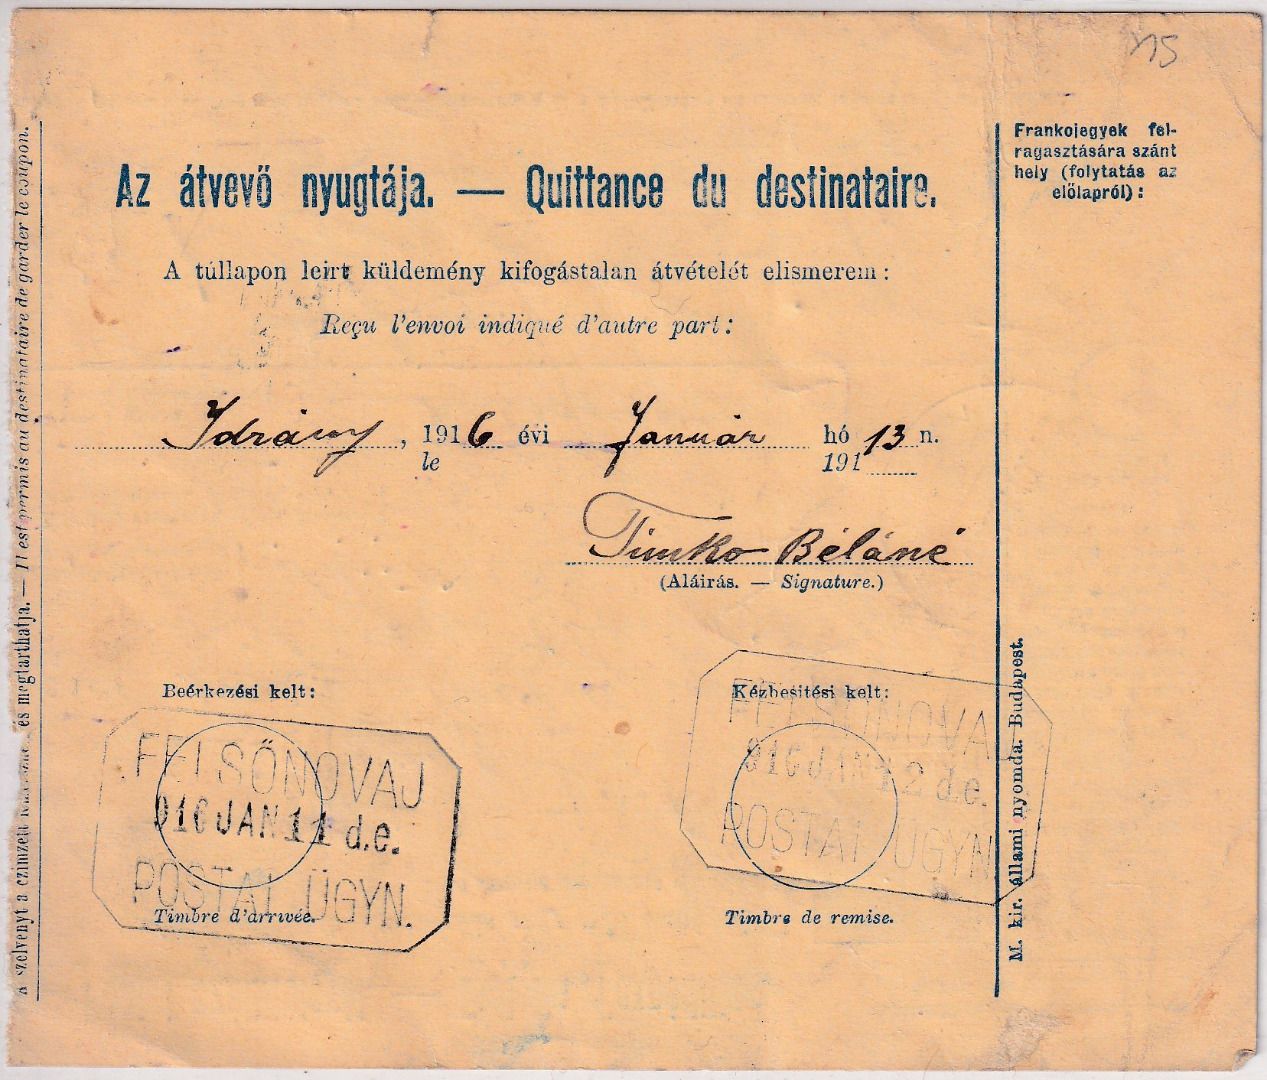 Y15
Frankojegyek fel-
ragasztására szánt
hely (folytatás az
előlapról):
Az átvevő nyugtája. — Quittance du destinataire.
A túllapon leirt küldemény kifogástalan átvételét elismerem:
Reçu l'envoi indiqué d'autre part:
Idrány, 1916 évi Január hó 13 n.
le 191
Timko Béláné
(Aláirás. — Signature.)
Beérkezési kelt:
FELSŐNOVAJ
916 JAN 11 d.e.
POSTAI ÜGYN.
Timbre d'arrivée.
Kézbesitési kelt:
FELSŐNOVA
916 JAN 12 d.e.
POSTAI ÜGYN
Timbre de remise.
A szelvényt a czimzett és megtarthatja. — Il est permis au destinataire de garder le coupon.
M. kir. állami nyomda. Budapest.